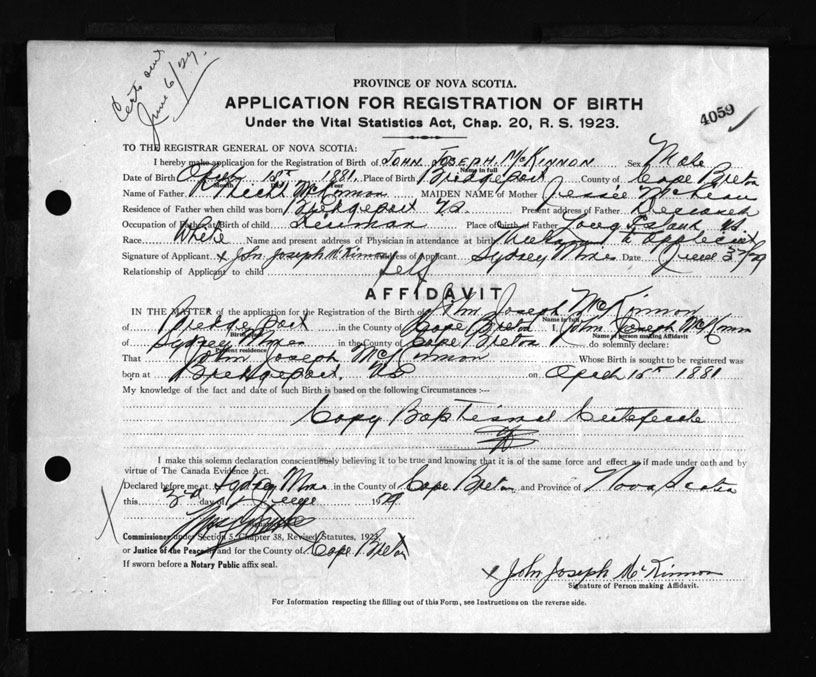 Certs sent
June 6/29.
PROVINCE OF NOVA SCOTIA.
APPLICATION FOR REGISTRATION OF BIRTH
4059
Under the Vital Statistics Act, Chap. 20, R. S. 1923.
TO THE REGISTRAR GENERAL OF NOVA SCOTIA:
I hereby make application for the Registration of Birth of JOHN JOSEPH McKINNON Sex Male
Name in full
Date of Birth April 15th 1881 Place of Birth Bridgeport County of Cape Breton
Month Year
Name of Father McKinnon MAIDEN NAME of Mother Jessie McLean
Residence of Father when child was born Bridgeport NS Present address of Father Deceased
Occupation of Father at Birth of child Place of Birth of Father Long Island NS
Race White Name and present address of Physician in attendance at birth to applicant
Signature of Applicant x John Joseph McKinnon Address of Applicant Sydney Mines Date June 3rd/29
Relationship of Applicant to child Self
AFFIDAVIT
IN THE MATTER of the application for the Registration of the Birth of John Joseph McKinnon
Name in full
of Bridgeport in the County of Cape Breton I, John Joseph McKinnon
Birthplace Name of person making Affidavit
of Sydney Mines in the County of Cape Breton do solemnly declare:
Present residence
That John Joseph McKinnon Whose Birth is sought to be registered was
born at Bridgeport, NS on April 15th 1881
My knowledge of the fact and date of such Birth is based on the following Circumstances :--
Copy Baptismal Certificate
I make this solemn declaration conscientiously believing it to be true and knowing that it is of the same force and effect as if made under oath and by
virtue of The Canada Evidence Act.
Declared before me at Sydney Mines in the County of Cape Breton and Province of Nova Scotia
this 3rd day of June 1929
Commissioner under Section 5, Chapter 38, Revised Statutes, 1923,
or Justice of the Peace in and for the County of Cape Breton
If sworn before a Notary Public affix seal.
x John Joseph McKinnon
Signature of Person making Affidavit.
For Information respecting the filling out of this Form, see Instructions on the reverse side.